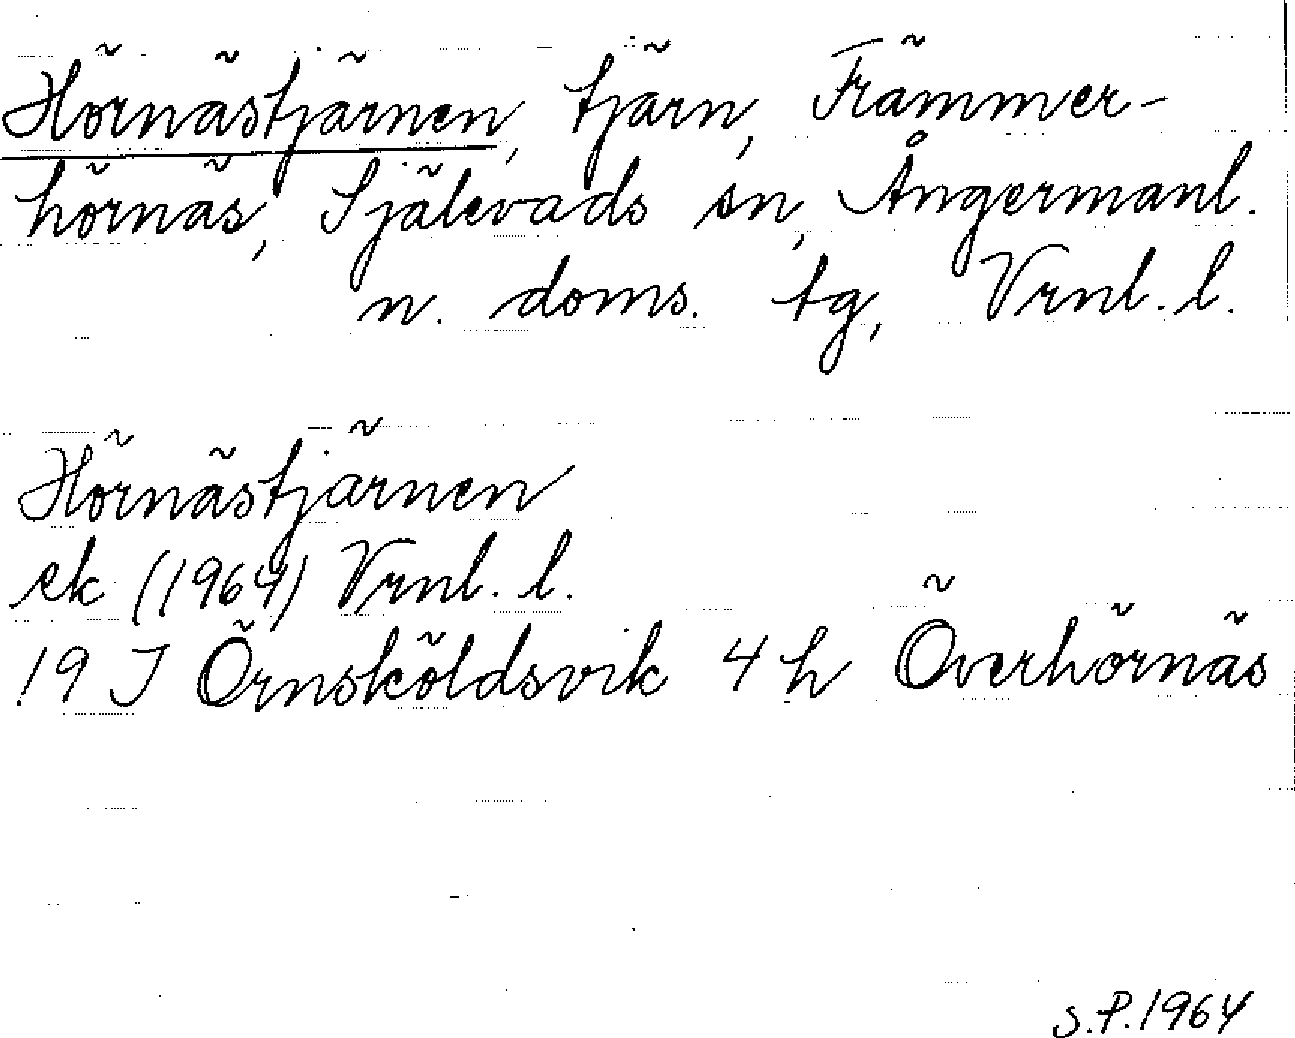 Hörnästjärnen, tjärn, Främmer-
hörnäs, Själevads sn, Ångermanl.
n. doms. tg, Vrnl. l.
Hörnästjärnen
ek (1964) Vrnl. l.
19 J Örnsköldsvik 4 h Överhörnäs
S.P. 1964